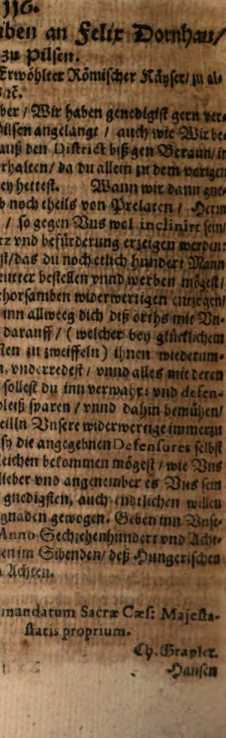 116.
iben an Felix Dornhau/
zu Pilsen.
Erwöhlter Römischer Käyser/ zu al-
ber / Wir haben genedigist gern ver-
ilsen angelangt / auch wie Wir be-
auß den District biß gen Beraun/ i
rhalten/ da du allein zu dem vorigen
ey hettest. Wann wir dann gne-
b noch theils von Prelaten / Herrn
/ so gegen Vns wol inclinirt sein/
rz vnd befürderung erzeigen werden:
st/ das du noch etlich hundert Mann
eutter bestellen vnnd werben mögest/
horsamben widerwertigen
inn allweeg dich diß orths mit Vn-
darauff / ( welcher bey glücklichem
ten zu zweiffeln ) ihnen widerumb-
n, vnderredest / vnnd alles mit deren
sollest du inn verwahr: vnd defen-
leiß sparen / vnnd dahin bemühen/
eilln Vnsere widerwertige immerzu
sy die angegebnen Defensores selbst
eichen bekommen mögest / wie Vns
lieber vnd angenember es Vns sein
gnedigsten, auch endtlichen willen
gnaden gewogen. Geben inn Vnse-
Anno Sechzehenhundert vnd Acht-
en im Sibenden/ deß Hungerischen
Achten.
mandatum Sacræ Cæs: Majesta-
statis proprium.
Ch. Grapler.
Hansen